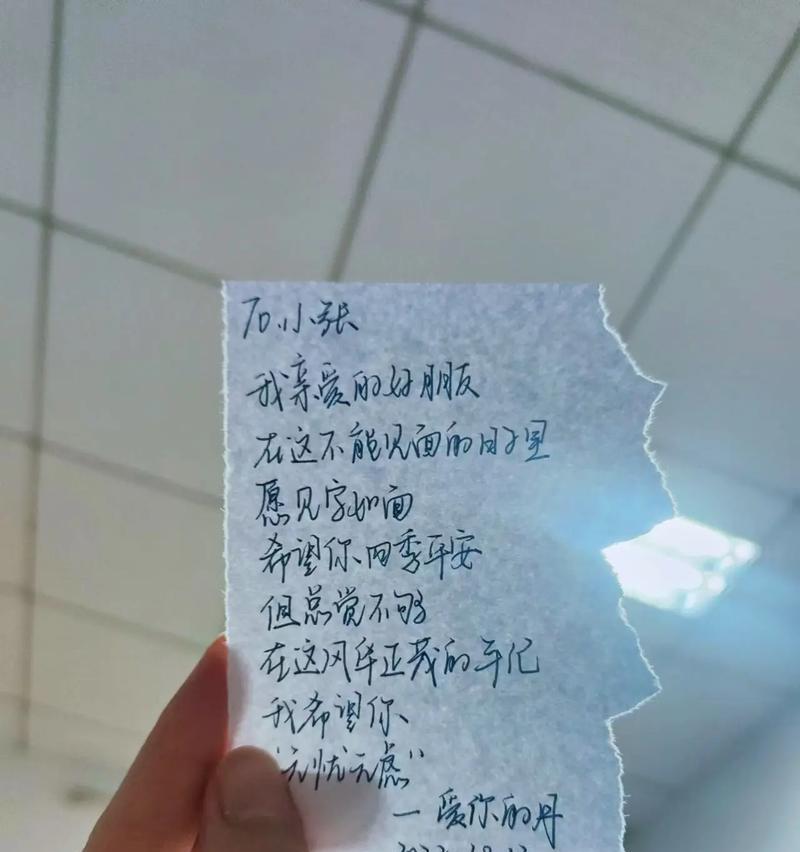 石小张
我亲爱的好朋友
在这不能见面的日子里
愿见字如面
希望你四季平安
但总觉不够
在这风华正茂的年纪
我希望你
“无忧无虑”
—爱你的丹